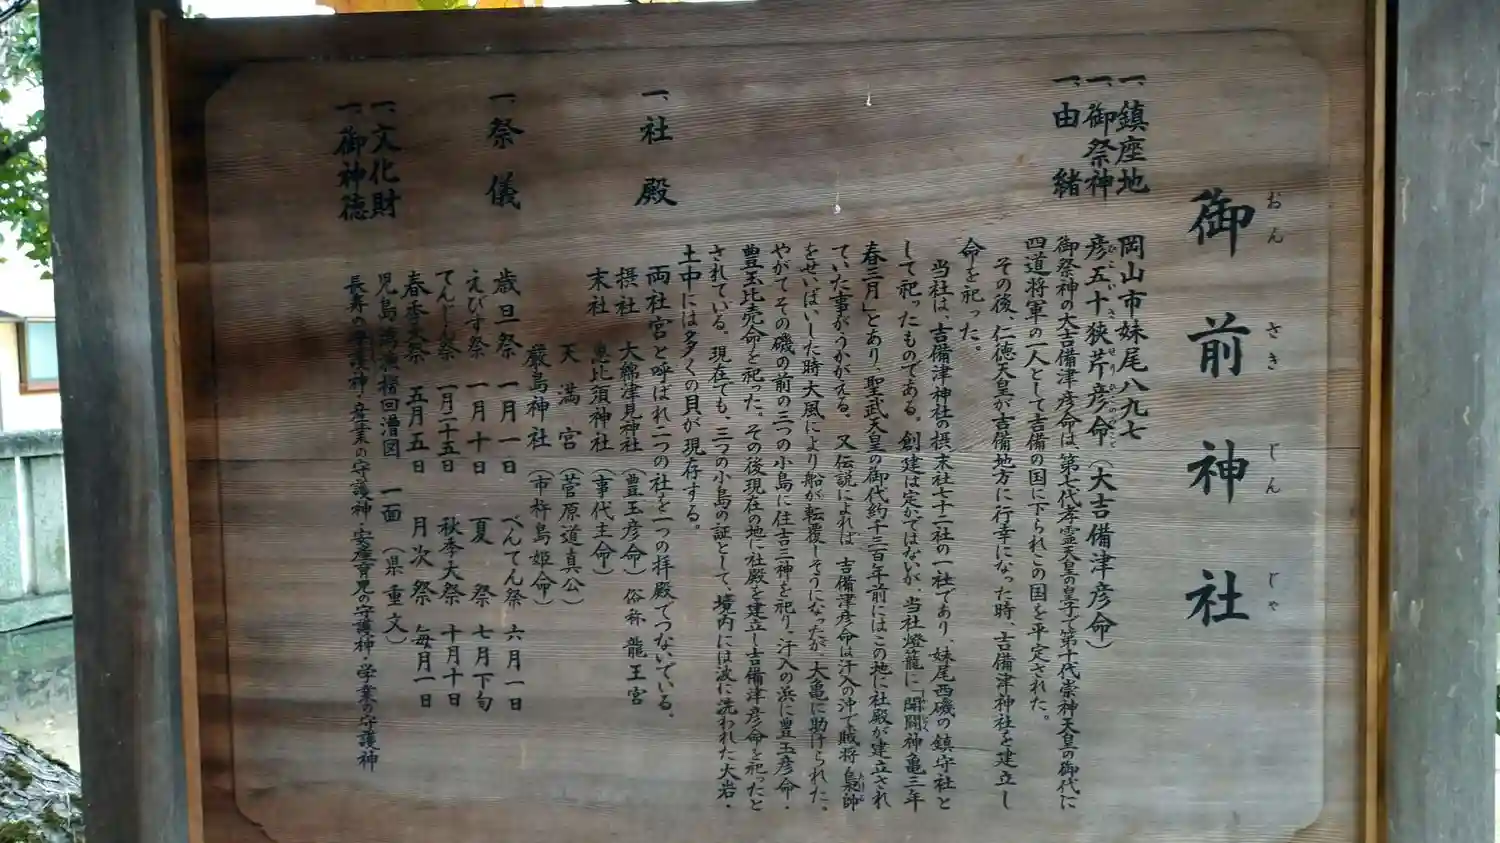 御前神社
おん さき じん じゃ
一、鎮座地 岡山市妹尾八九七
一、御祭神 彦五十狭芹彦命（大吉備津彦命）
一、由緒 御祭神の大吉備津彦命は第七代孝霊天皇の皇子で第十代崇神天皇の御代に
四道将軍の一人として吉備の国に下られこの国を平定された。
その後、仁徳天皇が吉備地方に行幸になった時、吉備津神社を建立し
命を祀った。
当社は、吉備津神社の摂末社七十二社の一社であり、妹尾西磯の鎮守社と
して祀ったものである。創建は定かではないが、当社燈籠に「開闢神亀三年
春三月」とあり、聖武天皇の御代約千三百年前にはこの地に社殿が建立され
ていた事がうかがえる。又伝説によれば、吉備津彦命は汗入の沖で賊将梟師
をせいばいした時大風により船が転覆しそうになったが、大亀に助けられた。
やがてその磯の前の三つの小島に住吉三神を祀り。汗入の浜に豊玉彦命・
豊玉比売命を祀った。その後現在の地に社殿を建立し吉備津彦命を祀ったと
されている。現在でも、三つの小島の証として、境内には波に洗われた大岩・
土中には多くの貝が現存する。
一、社殿 両社宮と呼ばれ二つの社を一つの拝殿でつないでいる。
摂社 大綿津見神社（豊玉彦命）俗称 龍王宮
末社 恵比須神社（事代主命）
天満宮（菅原道真公）
厳島神社（市杵島姫命）
一、祭儀 歳旦祭 一月一日 べんてん祭 六月一日
えびす祭 一月十日 夏祭 七月下旬
てんじん祭 一月二十五日 秋季大祭 十月十日
春季大祭 五月五日 月次祭 毎月一日
一、文化財 児島湾漁撈回漕図 一面（県重文）
一、御神徳 長寿の守護神・産業の守護神・安産育児の守護神・学業の守護神